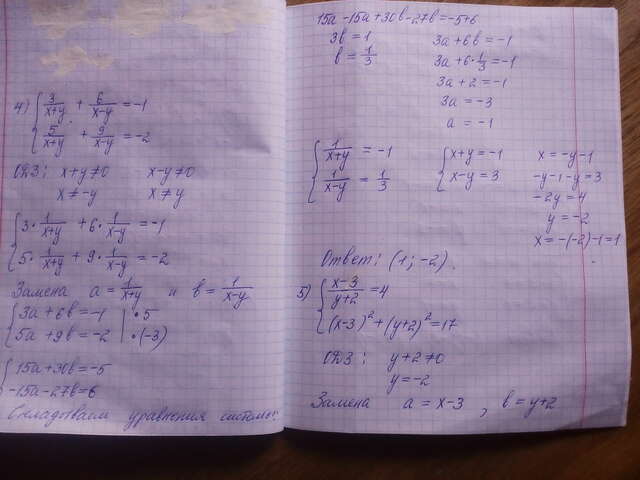 4) { 3/(x+y) + 6/(x-y) = -1
5/(x+y) + 9/(x-y) = -2
ОДЗ: x+y≠0 x-y≠0
x≠-y x≠y
{ 3·1/(x+y) + 6·1/(x-y) = -1
5·1/(x+y) + 9·1/(x-y) = -2
Замена a = 1/(x+y) и b = 1/(x-y)
{ 3a+6b=-1 | ·5
5a+9b=-2 | ·(-3)
{ 15a+30b=-5
-15a-27b=6
Складываем уравнения системы:
15a-15a+30b-27b=-5+6
3b=1
b=1/3
3a+6b=-1
3a+6·1/3=-1
3a+2=-1
3a=-3
a=-1
{ 1/(x+y) = -1
1/(x-y) = 1/3
{ x+y=-1
x-y=3
x=-y-1
-y-1-y=3
-2y=4
y=-2
x=-(-2)-1=1
Ответ: (1;-2).
5) { (x-3)/(y+2) = 4
(x-3)²+(y+2)²=17
ОДЗ: y+2≠0
y=-2
Замена a=x-3, b=y+2